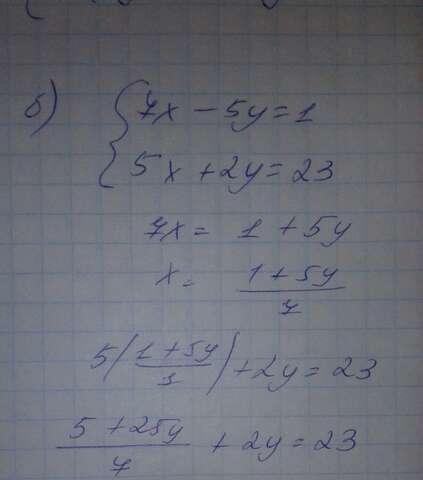 б) { 7x - 5y = 1
5x + 2y = 23
7x = 1 + 5y
x = (1 + 5y)/7
5((1 + 5y)/7) + 2y = 23
(5 + 25y)/7 + 2y = 23